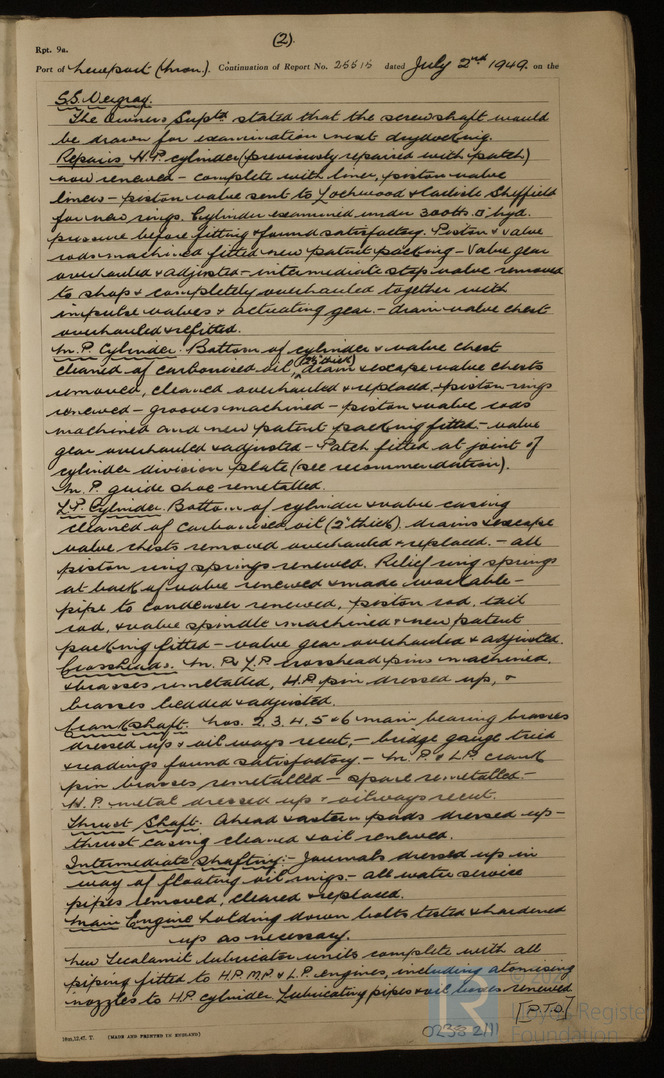 (2)
Rpt. 9a.
Port of Newport (Mon.). Continuation of Report No. 25515 dated July 2nd 1949. on the
S.S. Neigray.
The Owners Suptd stated that the screwshaft would
be drawn for examination next drydocking.
Repairs H.P. cylinder (previously repaired with patch)
now renewed - complete with liner, piston valve
liners - piston valve sent to Lockwood & Carlisle Sheffield
for new rings. Cylinder examined under 300 lbs. □" hyd.
pressure before fitting & found satisfactory. Piston & valve
rods machined fitted new patent packing - Valve gear
overhauled & adjusted - intermediate stop valve removed
to shop & completely overhauled together with
impulse valves & actuating gear. - drain valve chest
overhauled & refitted.
M.P. Cylinder. Bottom of cylinder & valve chest
cleaned of carbonised oil, drain & escape valve chests
removed, cleaned overhauled & replaced, piston rings
renewed - grooves machined - piston & valve rods
machined and new patent packing fitted - valve
gear overhauled & adjusted - Patch fitted at joint of
cylinder division plate (see recommendation).
M.P. guide shoe remetalled.
L.P. Cylinder. Bottom of cylinder & valve casing
cleaned of carbonised oil (2" thick). drains & escape
valve chests removed overhauled & replaced. - all
piston ring springs renewed. Relief ring springs
at back of valve renewed & made workable -
pipe to condenser renewed, piston rod, tail
rod, & valve spindle machined & new patent
packing fitted - valve gear overhauled & adjusted.
Crossheads. M.P. & L.P. crosshead pins machined,
& brasses remetalled, H.P. pin dressed up, &
brasses bedded & adjusted.
Crankshaft. Nos. 2, 3, 4, 5 & 6 main bearing brasses
dressed up & oil ways recut, - bridge gauge tried
& readings found satisfactory. - M.P. & L.P. crank
pin brasses remetalled - spare remetalled. -
H.P. metal dressed up & oilways recut.
Thrust Shaft. Ahead & astern pads dressed up -
thrust casing cleaned & oil renewed.
Intermediate Shafting: - Journals dressed up in
way of floating oil rings. - all water service
pipes removed, cleared & replaced.
Main Engine holding down bolts tested & hardened
up as necessary.
New Tecalamit lubricator units complete with all
piping fitted to H.P. M.P. & L.P. engines, including atomising
nozzles to H.P. cylinder. Lubricating pipes & oil boxes renewed
[P.T.O.]
(MADE AND PRINTED IN ENGLAND)
0238 2/11
LR
Lloyd's Register
Foundation